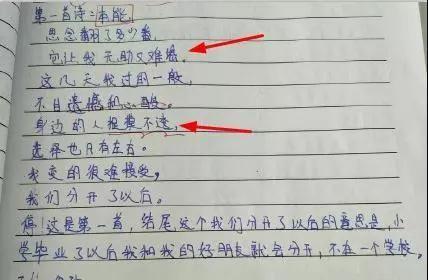 第一首诗:本能。
思念翻了多少番,
它让我无助又难堪。
这几天我过的一般,
不甘遗憾和心酸。
身边的人捉摸不透,
选择也只有左右。
我变的很难接受,
我们分开了以后。
停!这是第一首,结尾这个我们分开了以后的意思是,小
学毕业了以后我和我的好朋友就会分开,不在一个学校,